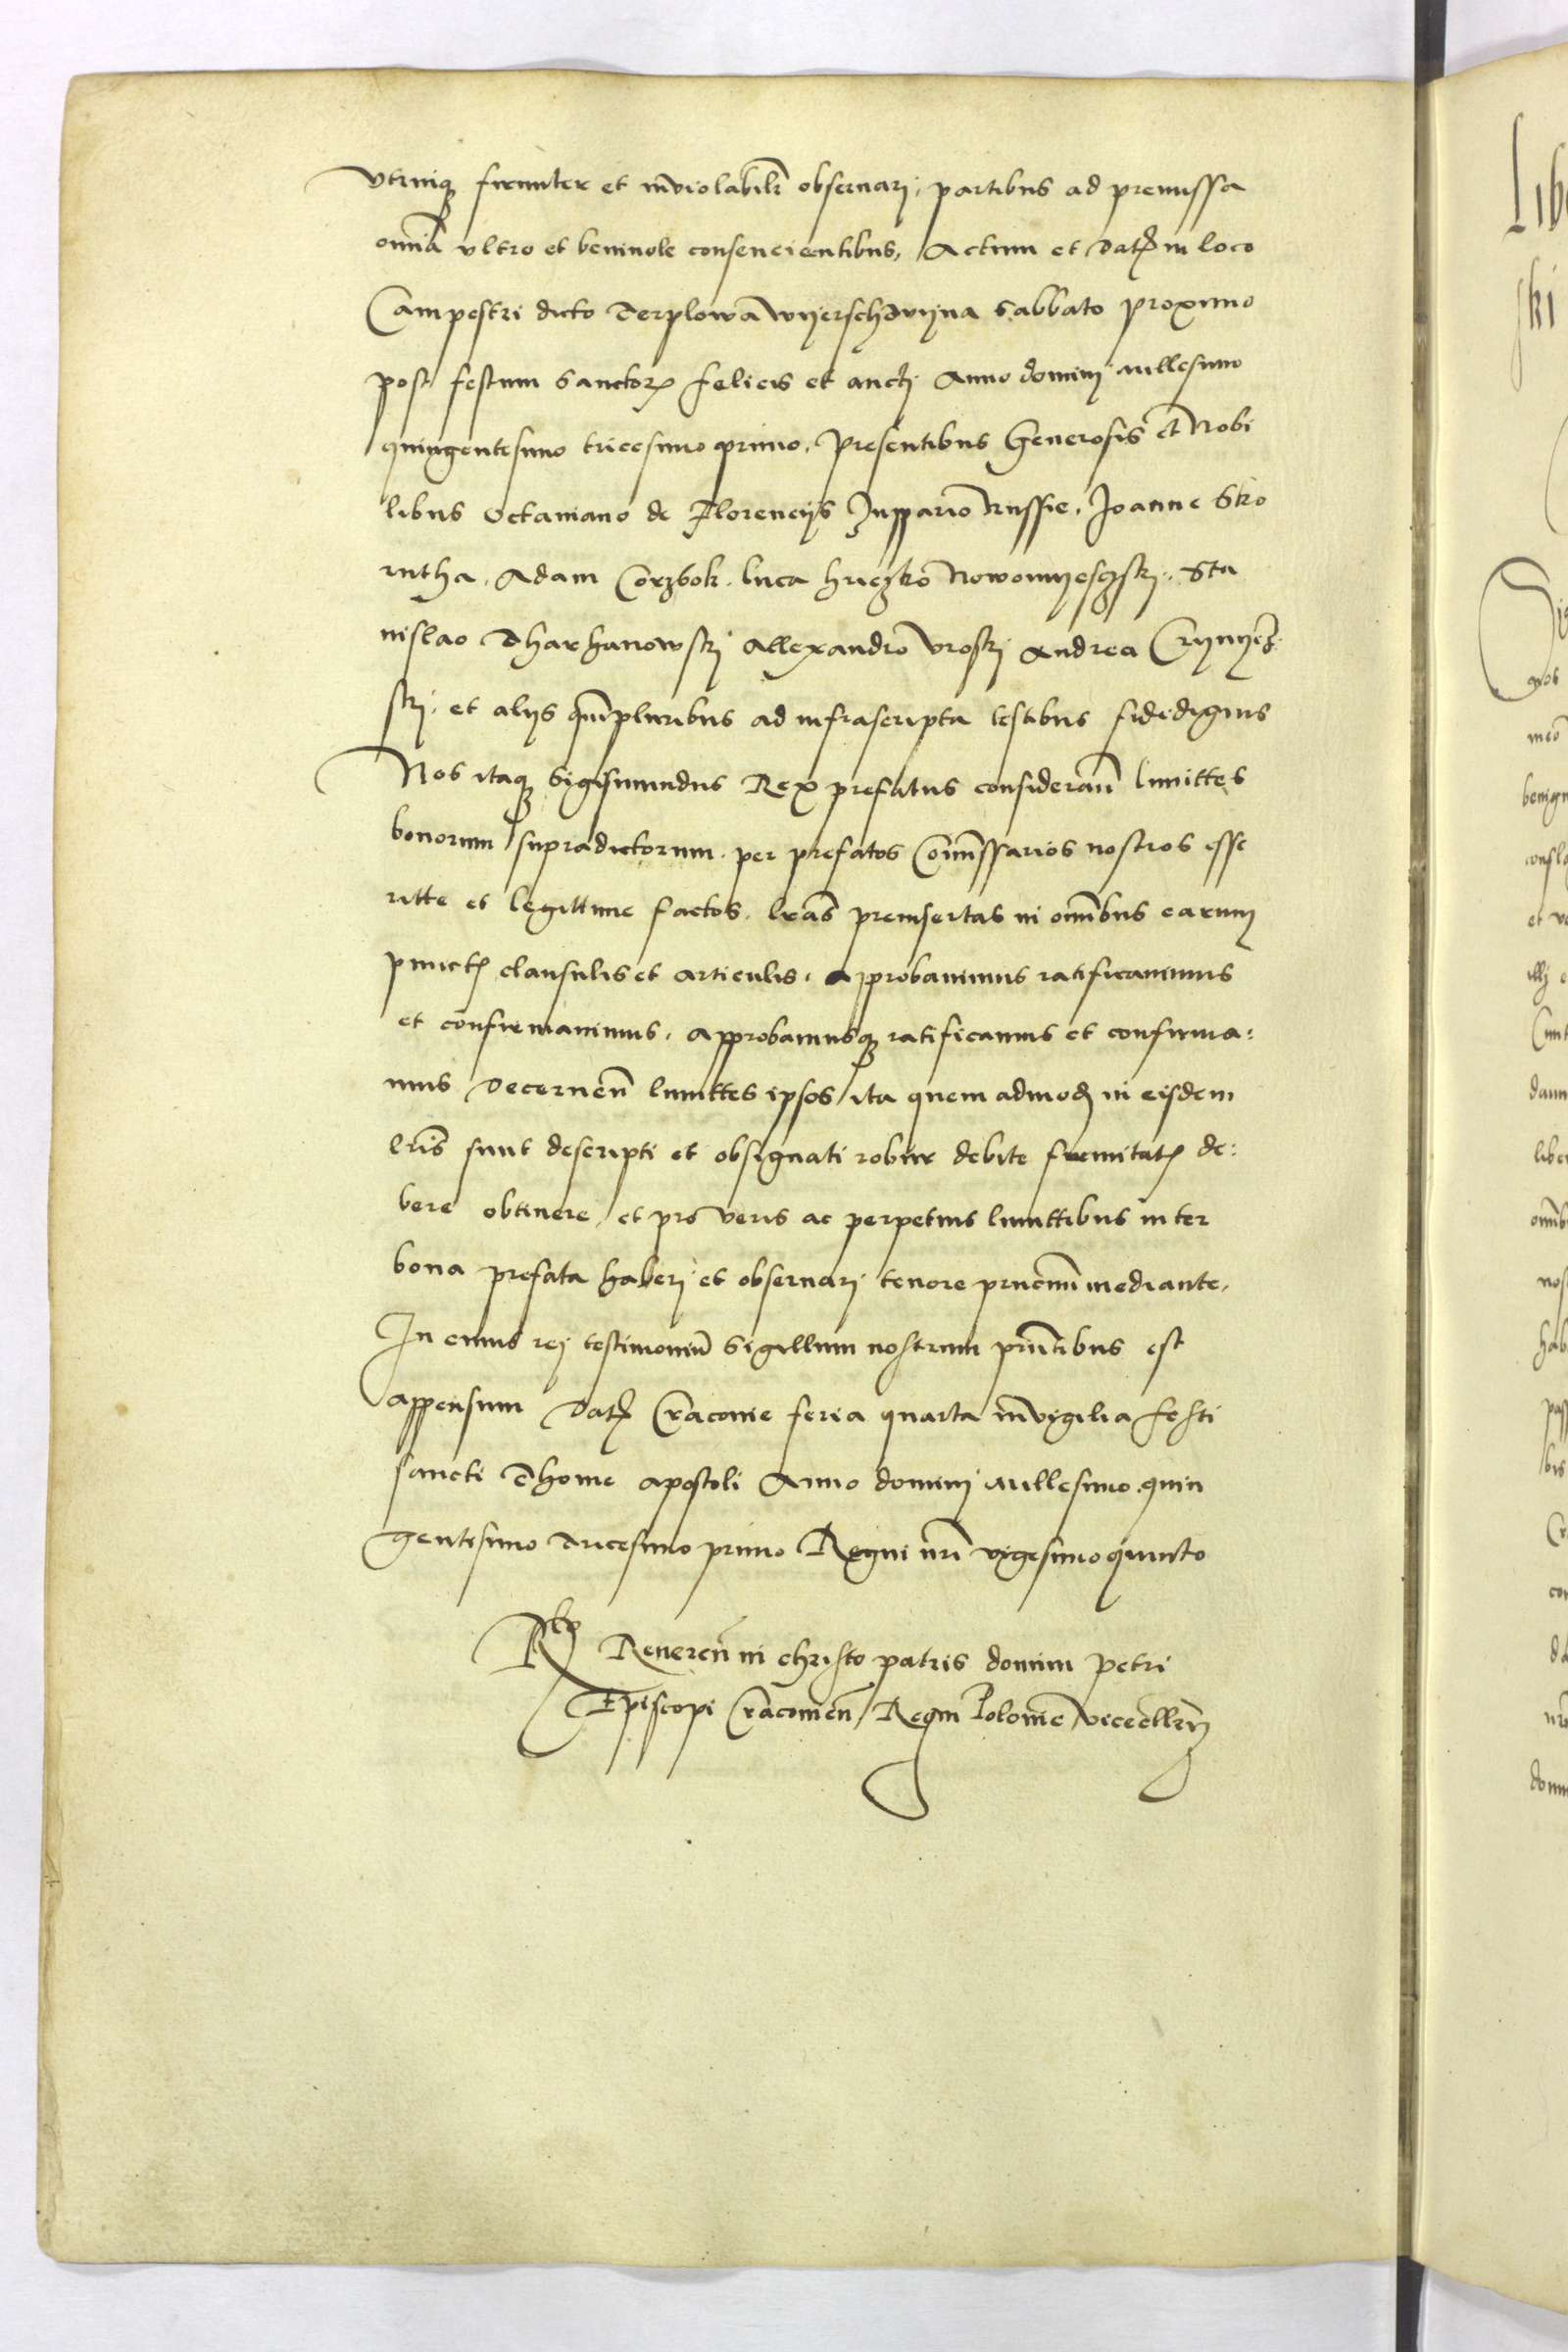 vtrinqȝ firmiter et inviolabilr̄ obseruarj, partibus ad premissa
omīa vltro et beniuole consencientibus, Actum et datꝭ in loco
Campestri dicto Derplowa wyerschowyna Sabbato proximo
post festum Sanctorꝝ felicis et auctj Anno dominj millesimo
quingentesimo tricesimo primo, presentibus Generosis et Nobi
libus Octauiano de Florencijs Zuppario Russie, Joanne Sko
rutha, Adam Corzbok, luca hriczko Nowomyesczskj, Sta
nislao Dharhanowskj Allexandro vroskj Andrea
skj, et alijs q̄mpluribus ad infrascripta testibus fidedignis
Nos itaqȝ Sigismundus Rex prefatus consideran̄ limittes
bonorum supradictorum per prefatos Comissarios nostros esse
ritte et legittime factos, lr̄as preinsertas in omībus earum
punctꝭ clausulis et articulis, approbauimus ratificauimus
et confirmauimus, Approbamusqȝ ratificamus et confirma:
mus decernen̄ limittes ipsos ita quem admodꝭ in eisdem
lr̄is sunt descripti et obsignati robur debite firmitatꝭ de:
bere obtinere, et pro veris ac perpetuis limittibus inter
bona prefata haberj et obseruarj tenore pn̄cium mediante,
In cuius rej testimoniū Sigillum nostrum pn̄tibus est
appensum Datꝭ Cracouie feria quarta in vigilia festi
sancti Thome apostoli Anno dominj millesimo quin
gentesimo tricesimo primo Regni nr̄i vigesimo quinto
Rlo Reueren̄ in christo patris domini petri
Episcopi Cracouien̄ Regni Polonie vicecllrij